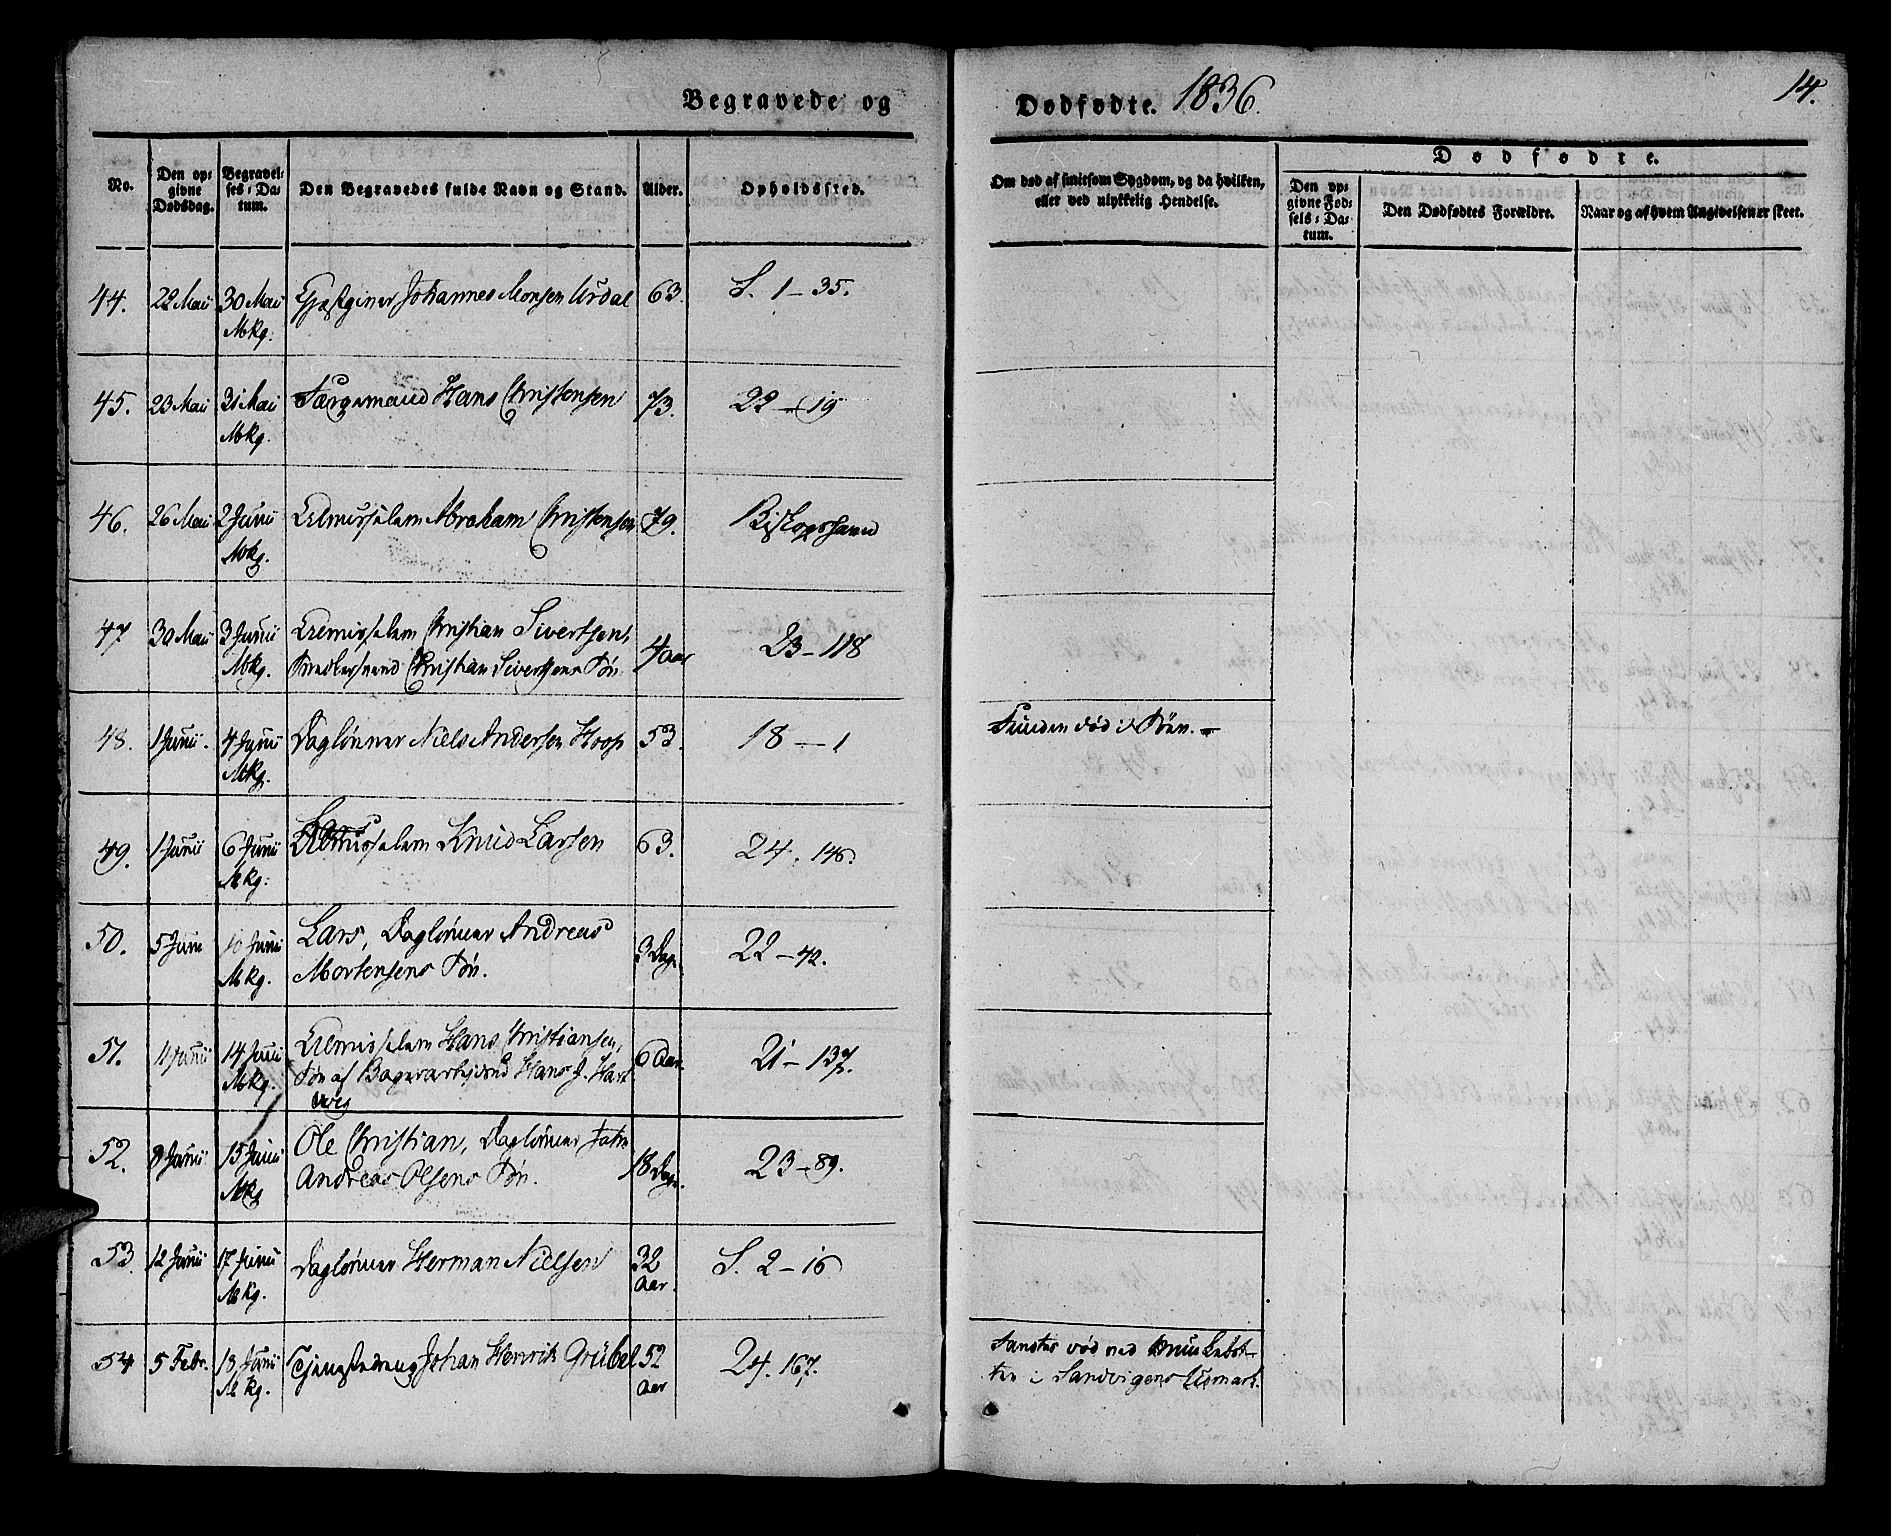 Begravede og
Dødfødte. 1836.
14.
No.
Den op-
givne
Dødsdag.
Begravel-
ses-Da-
tum.
Den Begravedes fulde Navn og Stand.
Alder.
Opholdssted.
Om død af smitsom Sygdom, og da hvilken,
eller ved ulykkelig Hendelse.
Dødfødte.
Den op-
givne Fød-
sels-Da-
tum.
Den Dødfødtes Forældre.
Naar og af hvem Angivelsen er skeet.
44. 22 Maii 30 Maii Johannes Monsen Urdal 63. S. 1 - 35.
Mkg.
45. 23 Maii 31 Maii Færgemand Hans Christensen 73. 22 - 19
Mkg.
46. 26 Maii 2 Junii Lemussalem Abraham Christensen 79. Bispkopshavn
Mkg.
47 30 Maii 3 Junii Christian Sivertsen, 4 aar 23 - 118
Mkg. Christian Sivertsens Søn
48. 1 Junii. 4 Junii Daglønner Niels Andersen Hoop 53. 18 - 1 Funden død i Søen. -
Mkg.
49. 1 Junii 6 Junii Knud Larsen 63. 24. 146.
Mkg.
50. 5 Junii 10 Junii Lars, Daglønner Andreas 3 Dage 22 - 42.
Mkg. Mortensens Søn.
51. 11 Junii 14 Junii Hans Christiansen, 6 Aar 21 - 137.
Mkg. Søn af Hans J. Hart
wig
52. 8 Junii 15 Junii Ole Christian, Daglønner 18 Dage. 23 - 89.
Mkg Andreas Olsens Søn.
53. 12 Junii 17 Junii Daglønner Herman Nielsen 32 S. 2 - 16
Mkg. Aar.
54 5 Febr. 13 Junii Johan Henrik Grübel 52 24. 167. død ved
Mkg. Aar i Sandvigens Udmark.